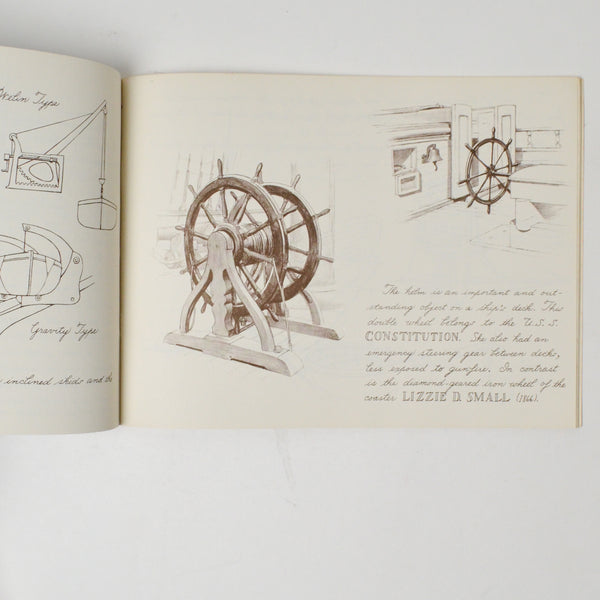 Welin Type
Gravity Type
inclined skids and the
The helm is an important and out-
standing object on a ship's deck. This
double wheel belongs to the U.S.S.
CONSTITUTION. She also had an
emergency steering gear between decks,
less exposed to gunfire. In contrast
is the diamond-geared iron wheel of the
coaster LIZZIE D. SMALL (1866).